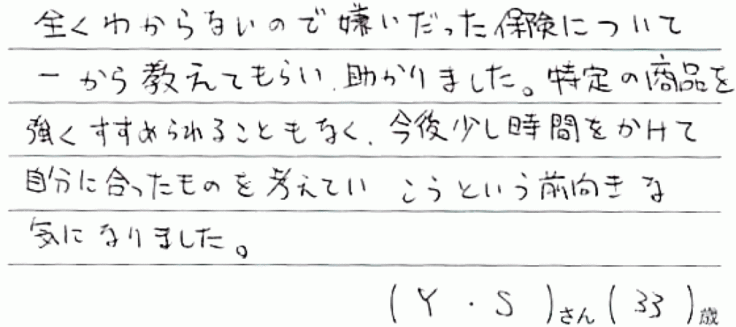 全くわからないので嫌いだった保険について
一から教えてもらい、助かりました。特定の商品を
強くすすめられることもなく、今後少し時間をかけて
自分に合ったものを考えていこうという前向きな
気になりました。
(Y・S)さん(33)歳